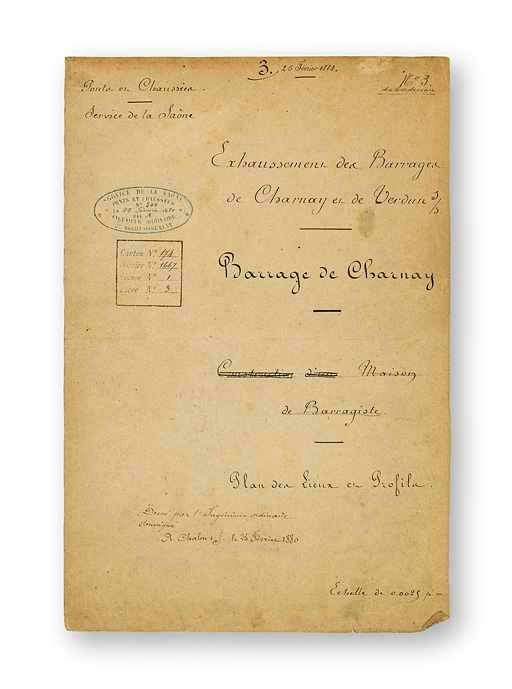 3. 25 Février 1880.
N° 3.
du bordereau
Ponts et Chaussées.
Service de la Saône
Exhaussement des Barrages
de Charnay et de Verdun s/s
SERVICE DE LA SAÔNE
PONTS ET CHAUSSÉES
N° 344
Le 25 Février 1880
INGÉNIEUR ORDINAIRE
2E ARRONDISSEMENT
Carton N° 174
Dossier N° 1667
Liasse N° 1
Pièce N° 3
Barrage de Charnay
Construction d'une Maison
de Barragiste.
Plan des Lieux et Profils.
Dressé par l'Ingénieur ordinaire
soussigné
A Chalon s/s. le 25 Février 1880
Echelle de 0.0025 p. m.